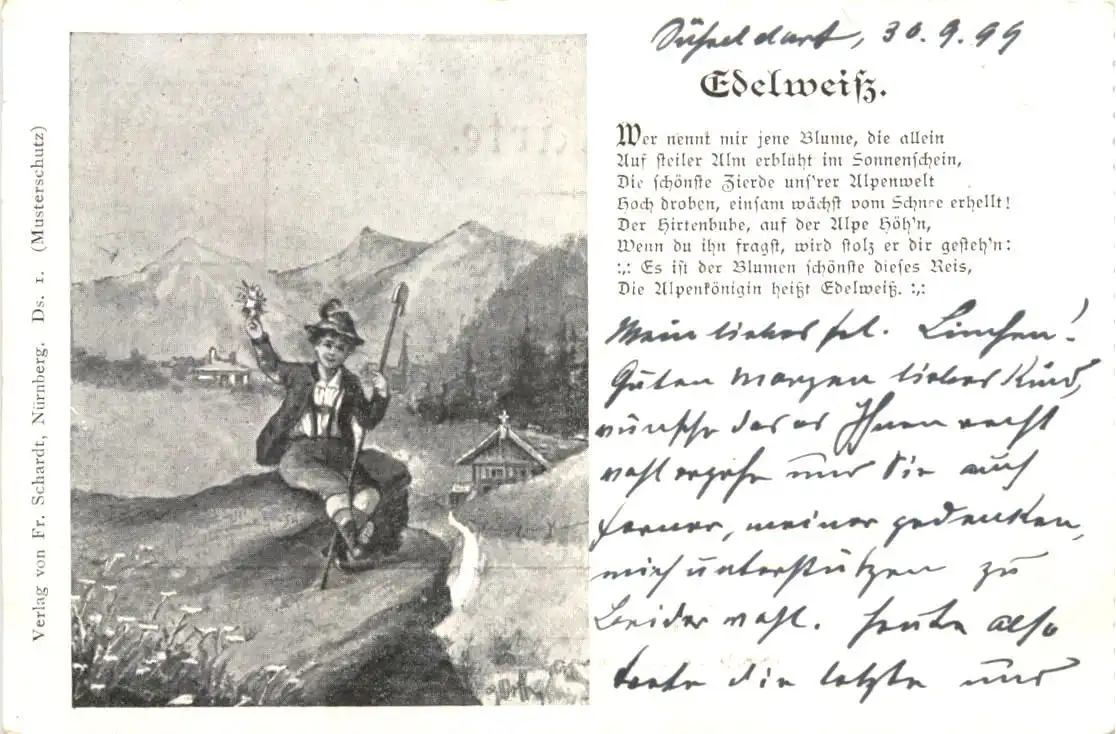 Verlag von Fr. Schardt, Nürnberg. Ds. 1. (Musterschutz)
Düsseldorf, 30.9.99
Edelweiß.
Wer nennt mir jene Blume, die allein
Auf steiler Alm erblüht im Sonnenschein,
Die schönste Zierde uns'rer Alpenwelt
Hoch droben, einsam wächst vom Schnee erhellt!
Der Hirtenbube, auf der Alpe Höh'n,
Wenn du ihn fragst, wird stolz er dir gesteh'n:
:,: Es ist der Blumen schönste dieses Reis,
Die Alpenkönigin heißt Edelweiß. :,:
Mein liebes frl. Linchen!
Guten Morgen liebes Kind,
wünsche das es Ihnen recht
wohl ergehe und Sie auch
ferner, meiner gedenken,
mich unterstützen zu
Beider wohl. Heute also
die letzte und